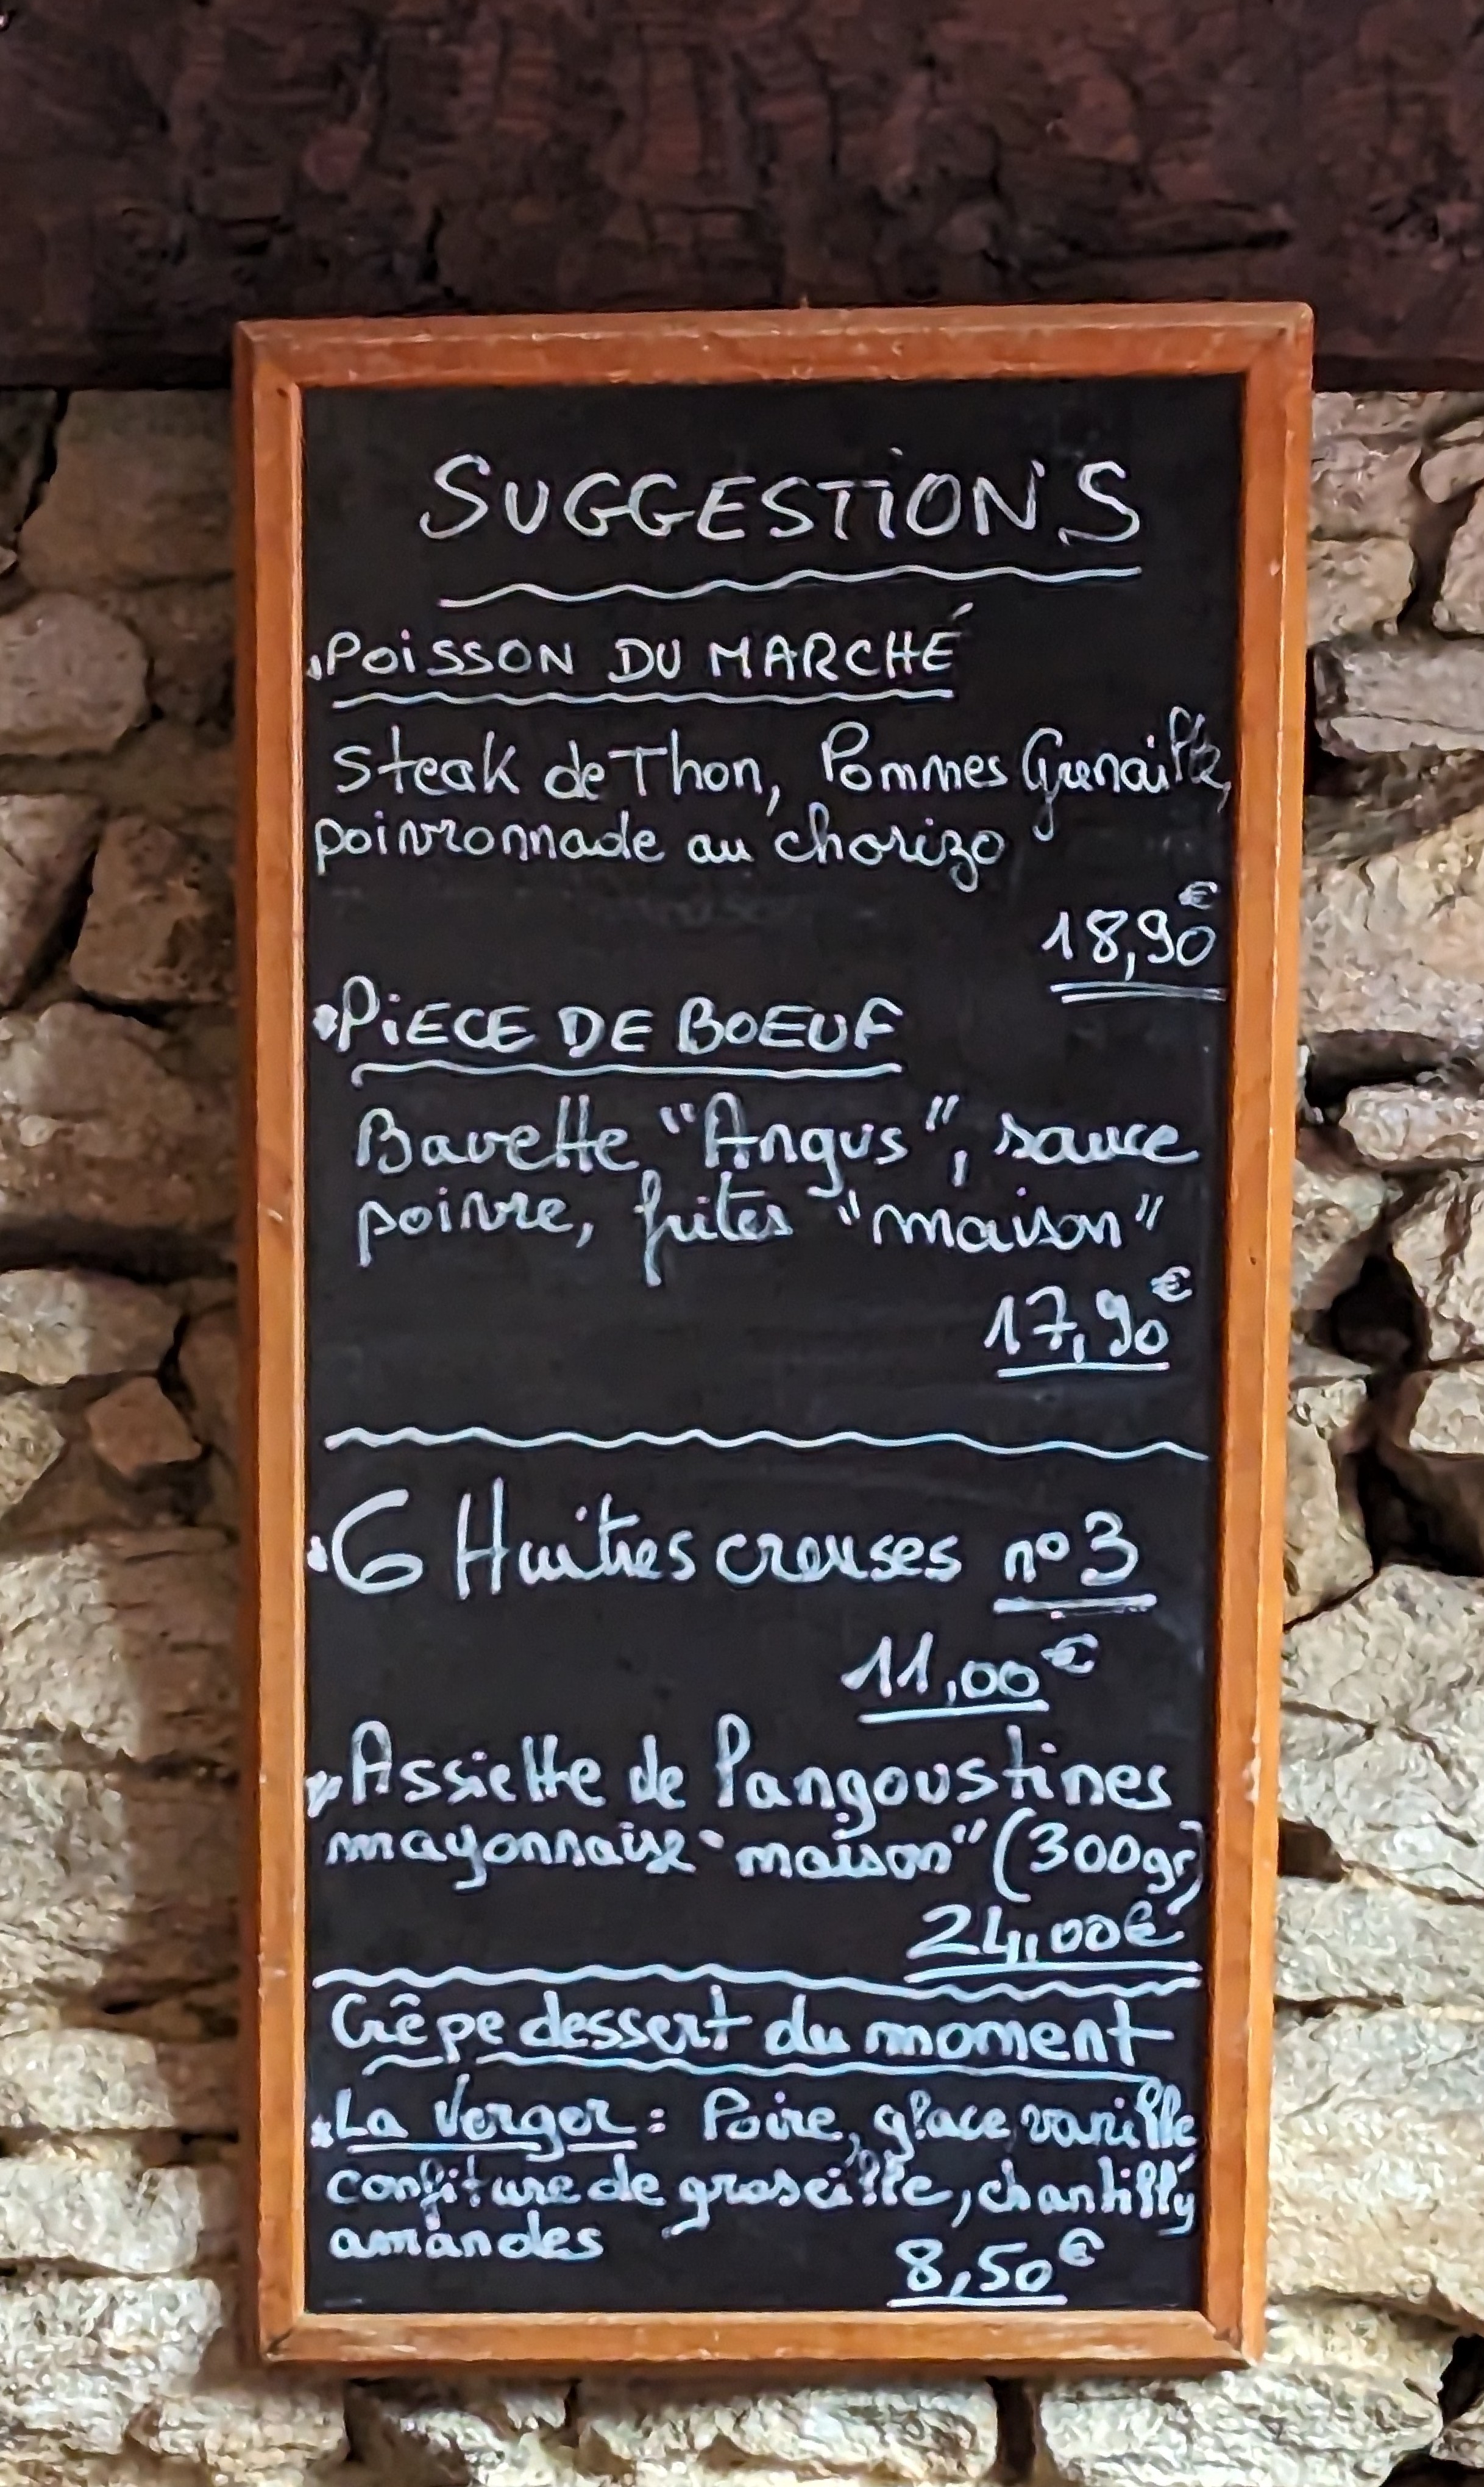 SUGGESTIONS
POISSON DU MARCHÉ
Steak de Thon, Pommes Grenaille,
poivronnade au chorizo
18,90€
PIECE DE BOEUF
Bavette "Angus", sauce
poivre, frites "maison"
17,90€
6 Huitres creuses n°3
11,00€
Assiette de Langoustines
mayonnaise "maison" (300gr)
24,00€
Crêpe dessert du moment
La Verger : Poire, glace vanille
confiture de groseille, chantilly
amandes
8,50€